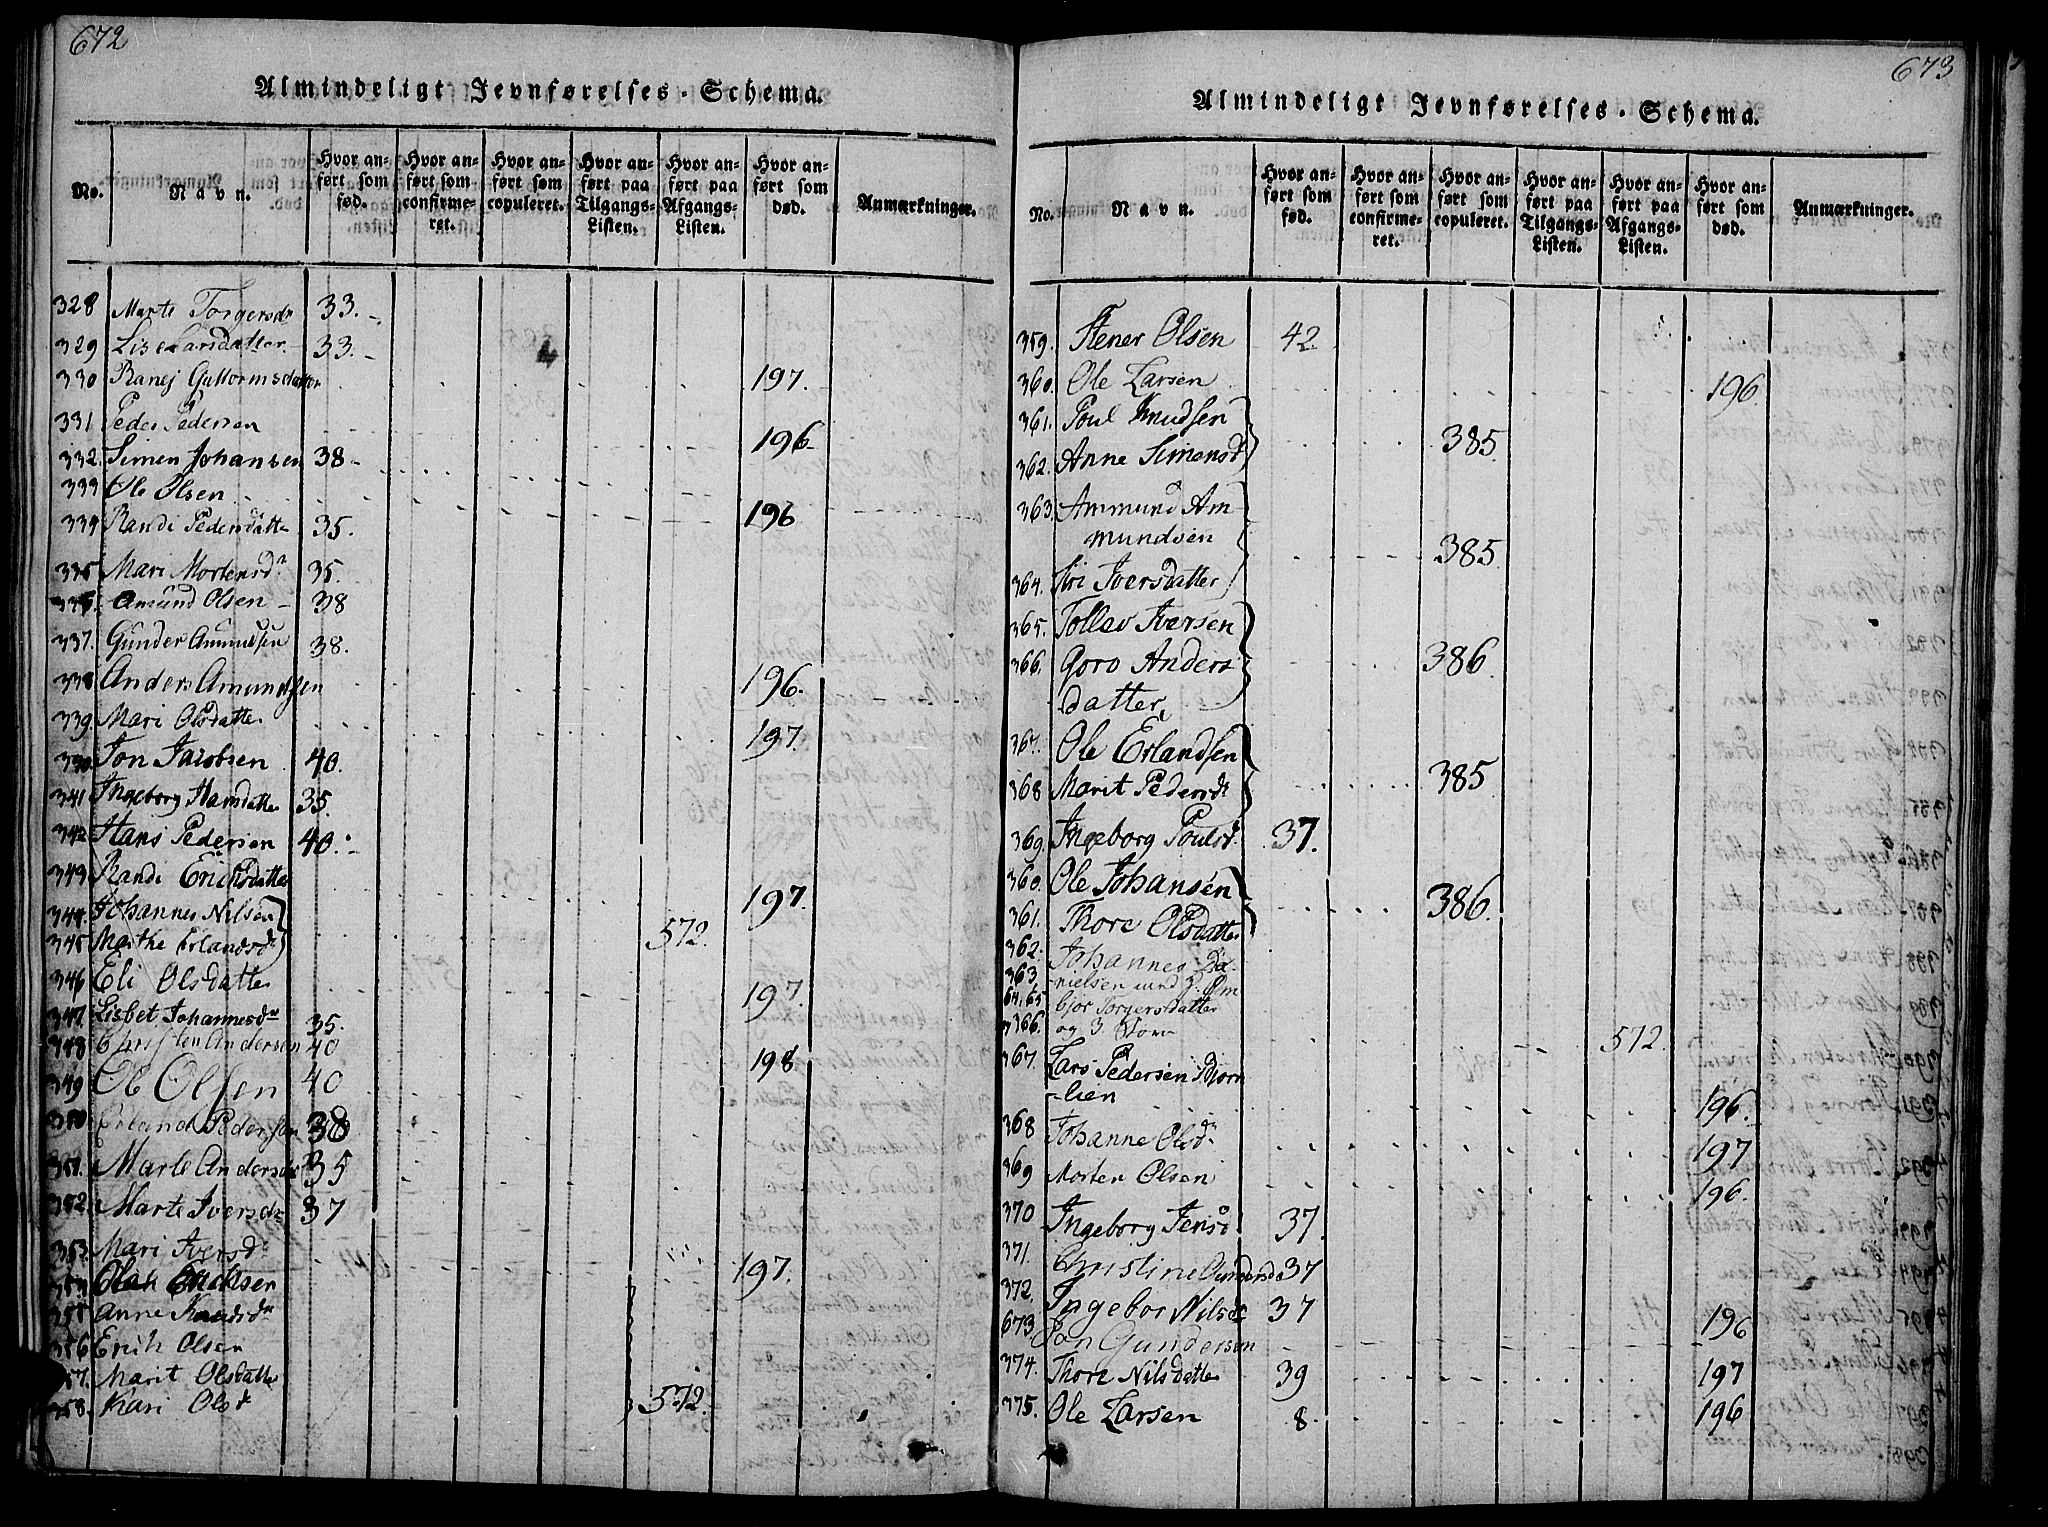 672
Almindeligt Jevnførelses-Schema.
No.
Navn.
Hvor anført som fød.
Hvor anført som confirmeret.
Hvor anført som copuleret.
Hvor anført paa Tilgangs-Listen.
Hvor anført paa Afgangs-Listen.
Hvor anført som død.
Anmærkninger.
328 Marte Torgersdr 33.
329 Lise Larsdatter 33.
330 Ranej Guttormsdatter 197.
331 Peder Pedersen 196.
332. Simen Johansen 38
333 Ole Olsen 196
334 Randi Pedersdatte 35.
335 Mari Mortensdr 35.
336. Amund Olsen 38
337. Gunder Amundsen 38.
338 Anders Amundsen 196.
339. Mari Olsdatte 197.
340 Jon Jacobsen 40.
341 Ingeborg Hansdatte 35.
342 Hans Pedersen 40.
343 Randi Ericksdatter 197.
344. Johannes Nilsen
345 Marthe Erlandsdr 572.
346 Eli Olsdatte 197.
347. Lisbet Johannesdr 35.
348 Christen Andersen 40
198
349 Ole Olsen 40
350 Erland Pedersen 38
351. Marte Andersdr 35
352. Marte Iversdr 37
353. Mari Iversdr 197.
354 Ericksen
355 Anne Knudsdr
356 Erich Olsen
357. Marit Olsdatte
358. Kari Olsdr 572.
673
Almindeligt Jevnførelses-Schema.
No.
Navn.
Hvor anført som fød.
Hvor anført som confirmeret.
Hvor anført som copuleret.
Hvor anført paa Tilgangs-Listen.
Hvor anført paa Afgangs-Listen.
Hvor anført som død.
Anmærkninger.
359. Stener Olsen 42
360. Ole Larsen 196
361. Poul Knudsen
362. Anne Simensd 385.
363. Ammund Am-
mundsen 385.
364. Siri Iversdatter
365. Tollev Iversen
366. Goro Anders 386.
datter
367. Ole Erlandsen
368 Marit Pedersdr 385
369. Ingeborg Poulsdr 37.
360. Ole Johansen 386.
361. Thore Olsdatter
362. Johannes Da-
363. nielsen
64,65 bjør Torgersdatter
366. og 3. 572.
367. Lars Pedersen Bjørn
lien 196.
368 Johanne Olsdr 197
369 Morten Olsen 196.
370 Ingeborg Jensd 37.
371. Christine 37
372. Ingebor Nilsdr 37
673 Jon Gundersen 196
374. Thore Nilsdatte 39 197
375. Ole Larsen 8. 196